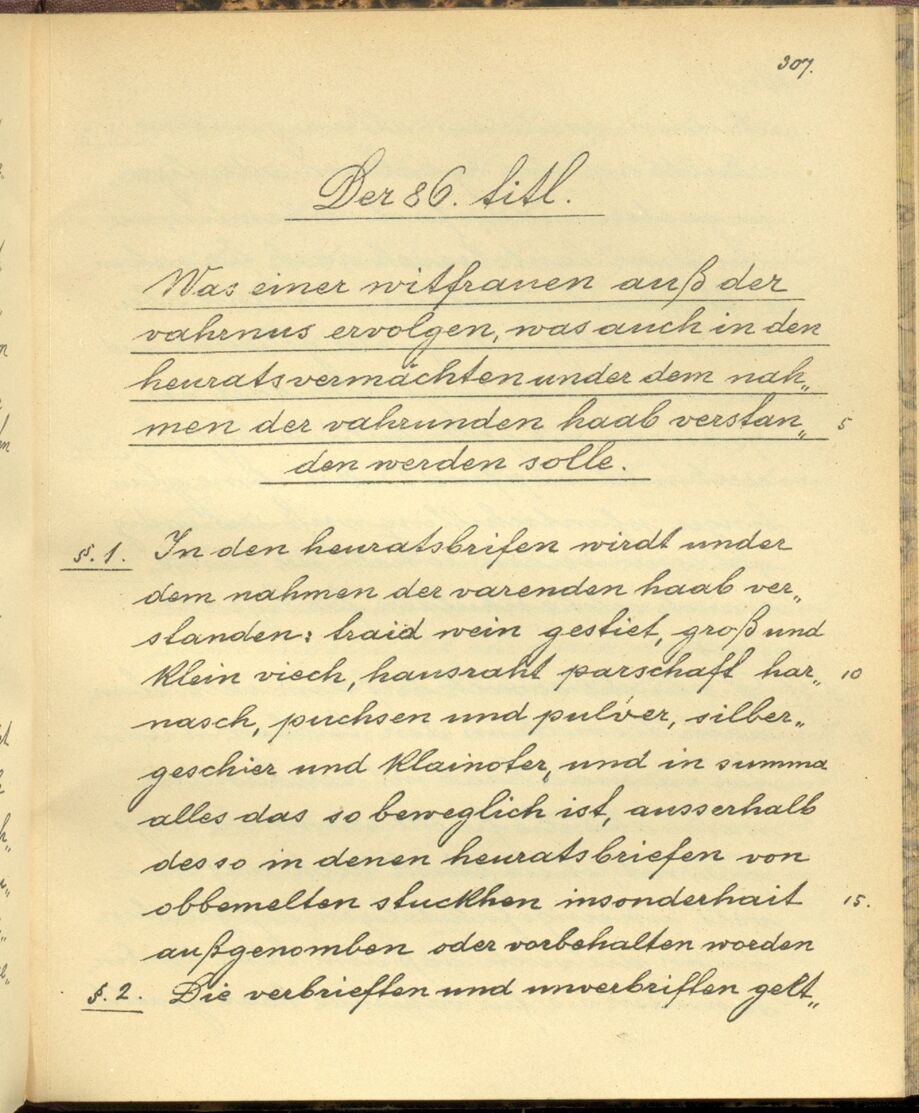 307.
Der 86. titl.
Was einer witfrauen auß der
vahrnus ervolgen, was auch in den
heuratsvermächten under dem nah„
men der vahrunden haab verstan„ 5
den werden solle.
§. 1. In den heuratsbrifen wirdt under
dem nahmen der varenden haab ver„
standen: traid wein gestiet, groß und
klein viech, hausraht parschaft har„ 10
nasch, puchsen und pulver, silber„
geschier und klainoter, und in summa
alles das so beweglich ist, ausserhalb
des so in denen heuratsbriefen von
obbemelten stuckhen insonderhait 15.
außgenomben oder vorbehalten worden
§. 2. Die verbrieften und unverbriften gelt„